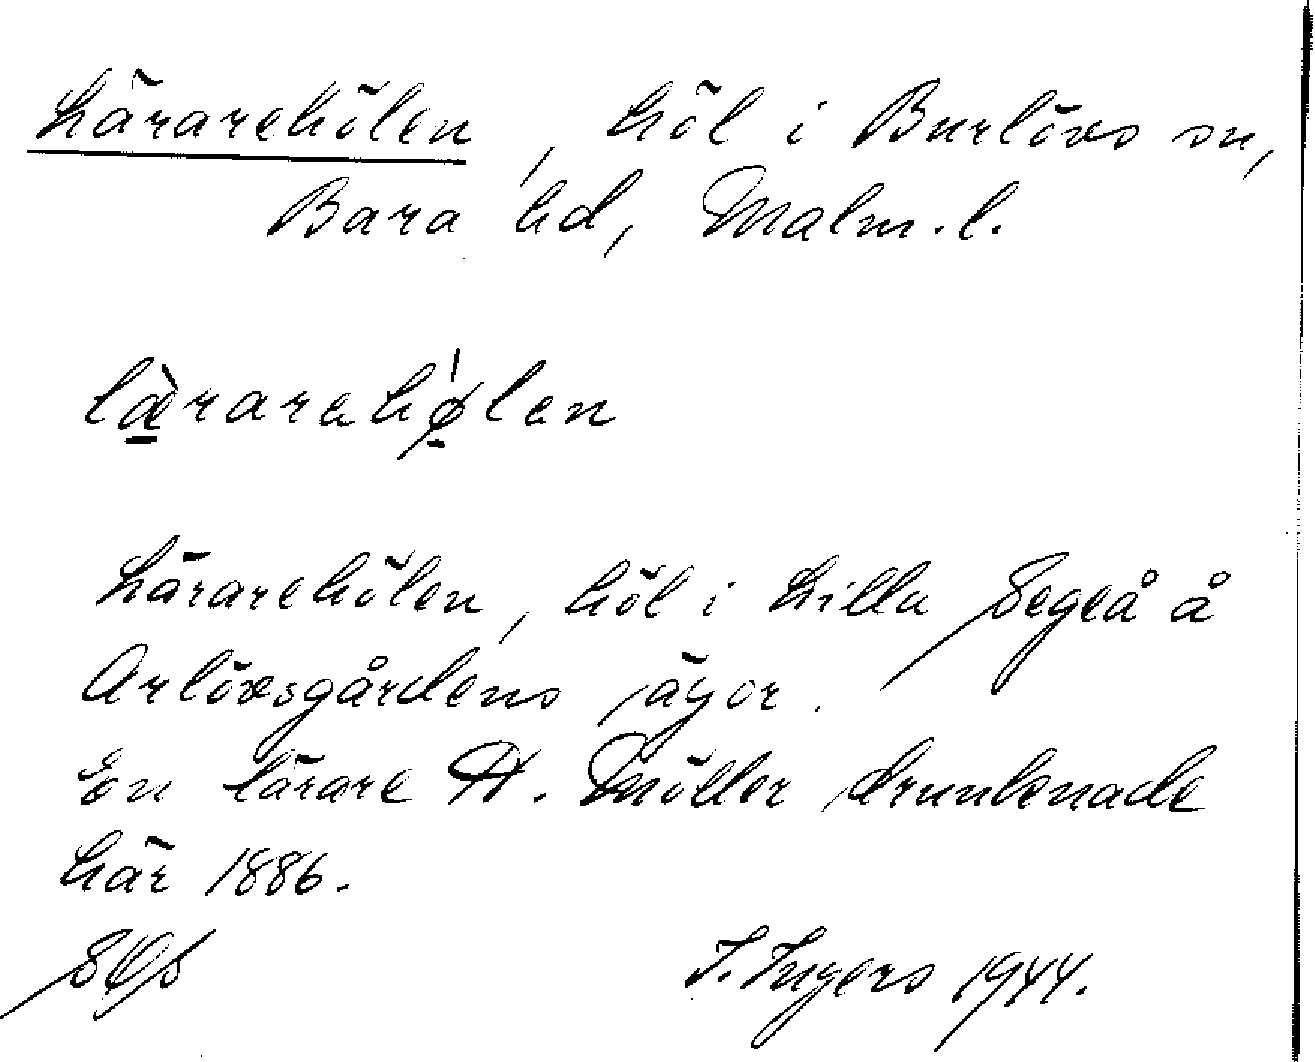 Lärarehölen, höl i Burlövs sn,
Bara hd, Malm. l.
læ̀rarehø̍len
Lärarehölen, höl i Lilla Segeå å
Arlövsgårdens ägor.
En lärare A. Möller drunknade
här 1886.
I. Ingers 1944.